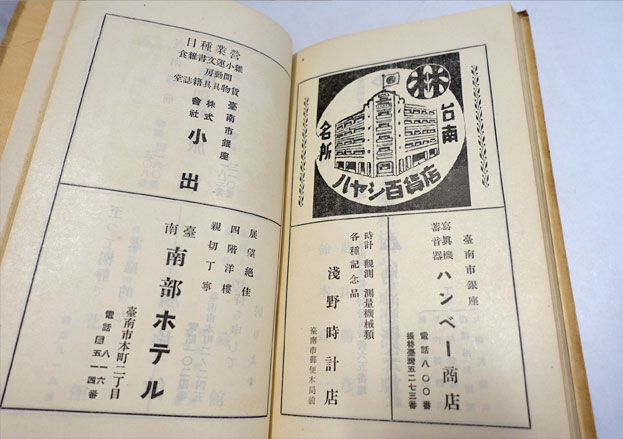 林
台南
名所
ハヤシ百貨店
臺南市銀座
寫眞機
蓄音器
ハンベー商店
電話八〇〇番
振替臺灣五二七三番
時計 觀測 測量機械類
各種記念品
淺野時計店
臺南市郵便本局前
營業種目
雜貨
小間物
運動具
文房具
書籍
雜誌
食堂
臺南市銀座
株式會社
小出
展望絕佳
四階洋樓
親切丁寧
臺南
南部ホテル
臺南市本町二丁目
電話
八一六
五一四番